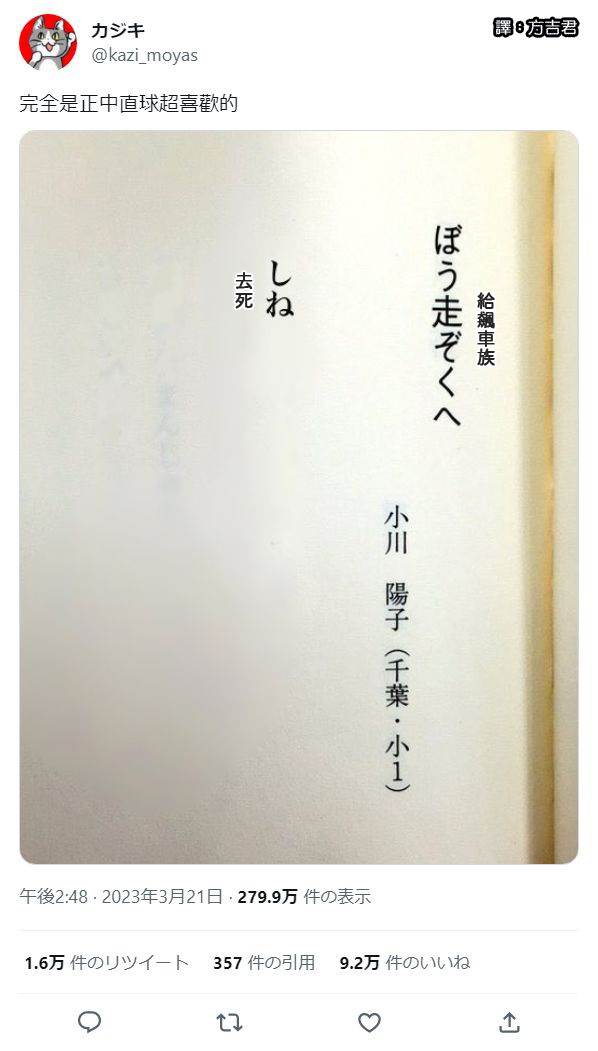 カジキ
@kazi_moyas
譯●方吉君
完全是正中直球超喜歡的
ぼう走ぞくへ
給飆車族
小川 陽子（千葉・小1）
しね
去死
午後2:48 · 2023年3月21日 · 279.9万 件の表示
1.6万 件のリツイート 357 件の引用 9.2万 件のいいね